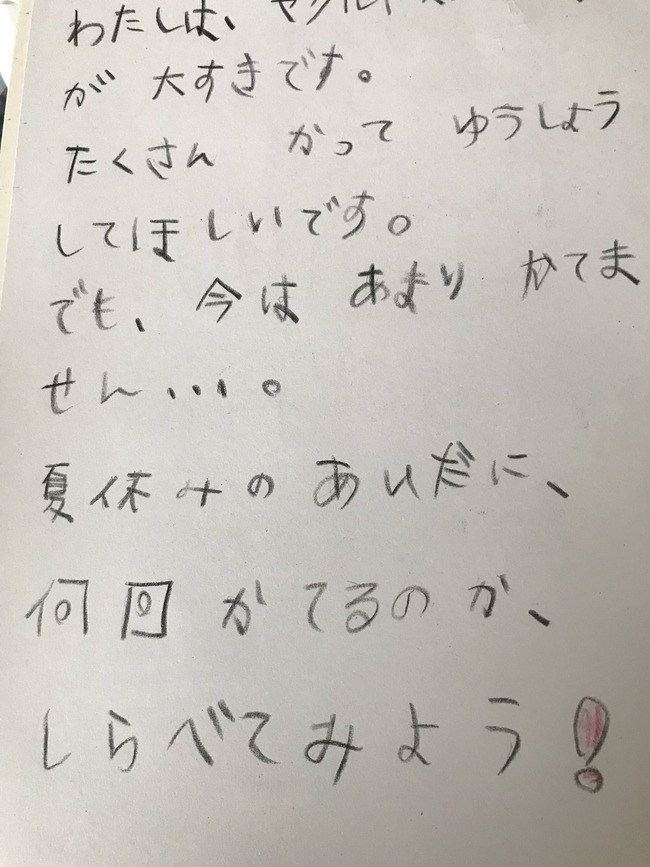 わたしは、ヤクルト
が 大すきです。
たくさん かって ゆうしょう
してほしいです。
でも、今は あまり かてま
せん・・・。
夏休みの あいだに、
何回 かてるのか、
しらべてみよう!